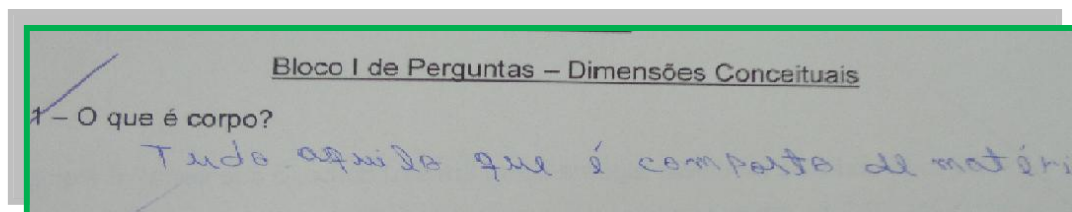 Bloco I de Perguntas – Dimensões Conceituais
1 – O que é corpo?
Tudo aquilo que é composto de matéri